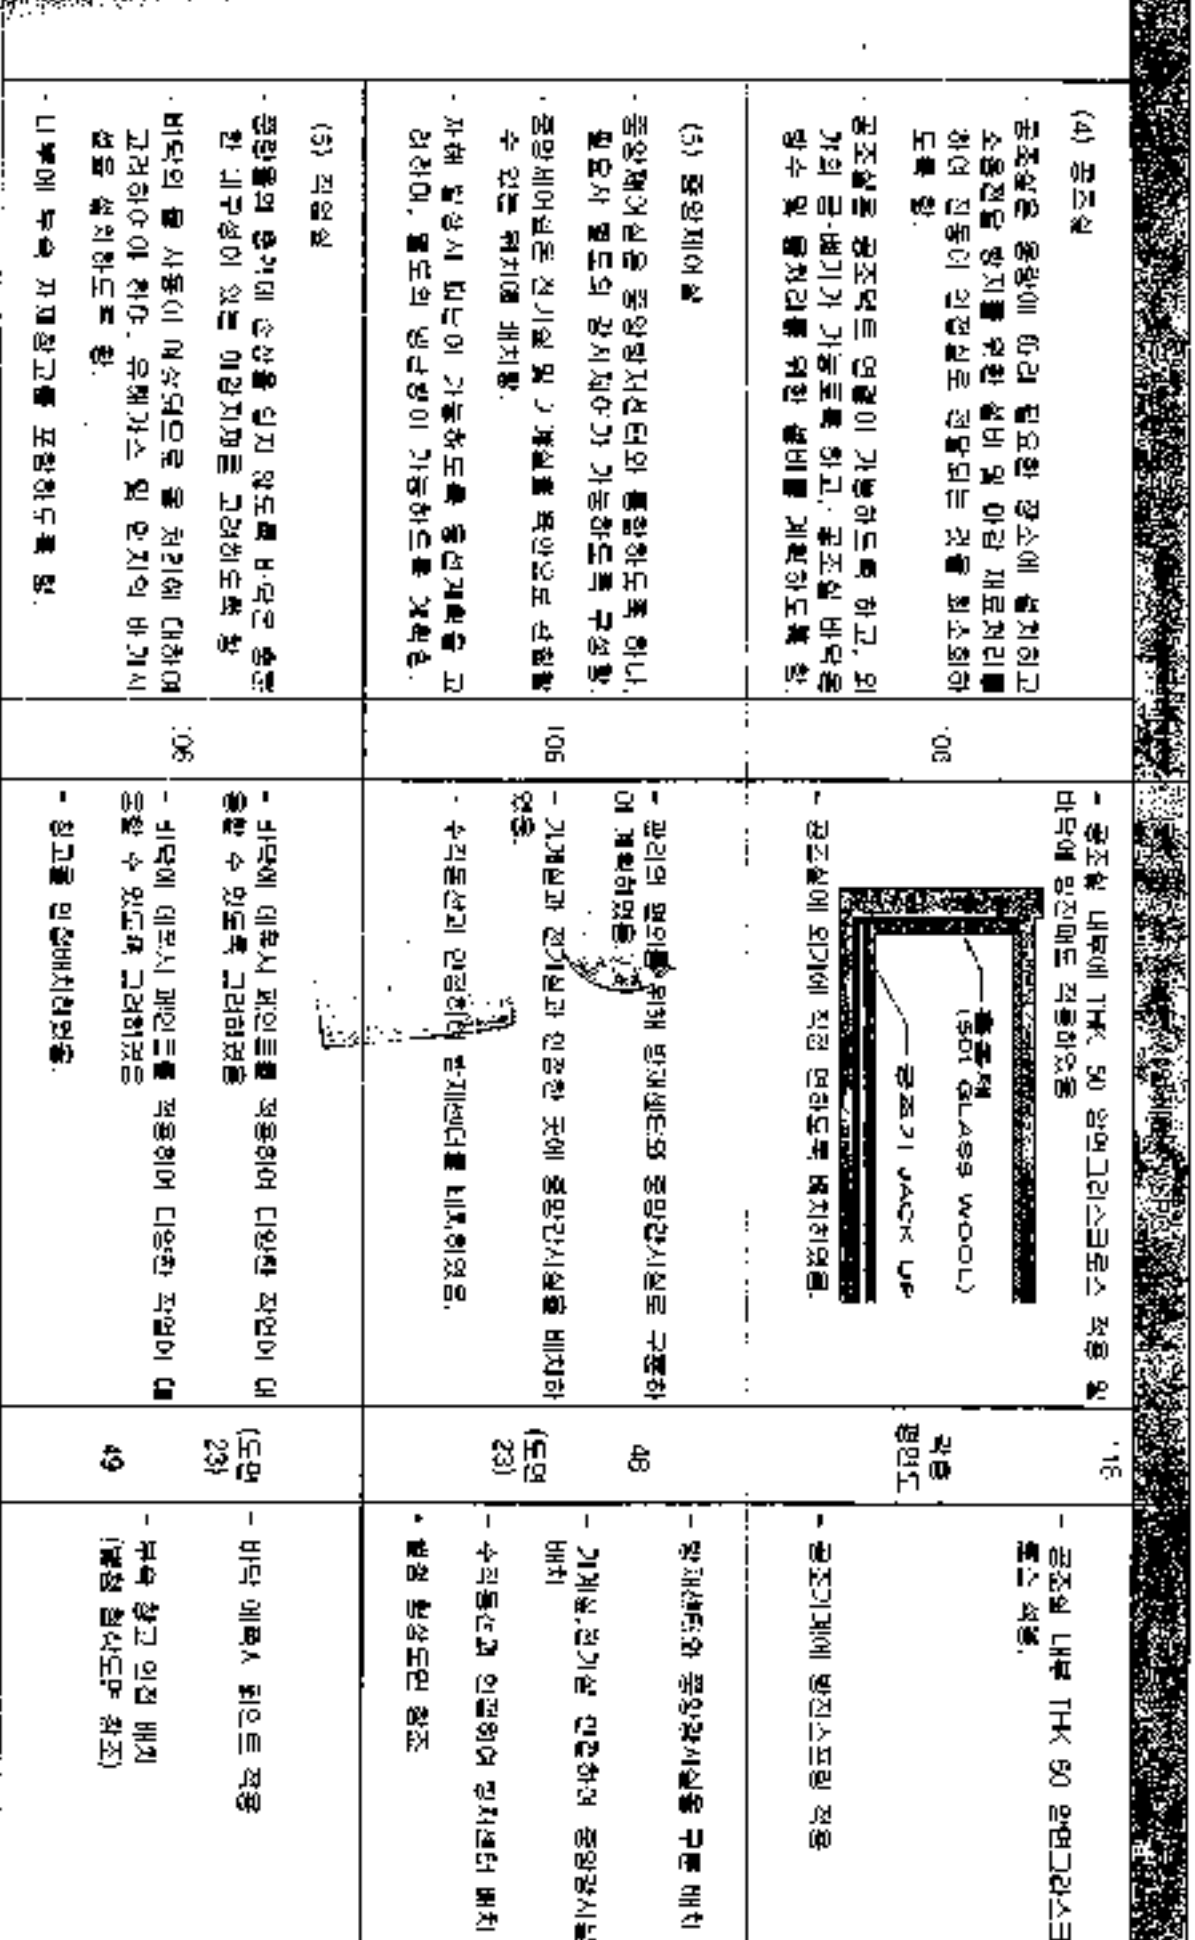 (4) 공조실
· 공조실은 용량에 따라 필요한 장소에 설치하고
소음전달 방지를 위한 설비 및 마감 재료처리를
하여 진동이 인접실로 전달되는 것을 최소화하
도록 함.
· 공조실은 공조덕트 연결이 가능하도록 하고, 외
기의 급·배기가 가능토록 하고, 공조실 바닥은
방수 및 물처리를 위한 설비를 계획하도록 함.
106
- 공조실 내부에 THK 50 암면그라스크로스 적용 및
바닥에 방진패드 적용하였음
흡음재
(50t GLASS WOOL)
공조기 JACK UP
- 공조실에 외기에 직접 면하도록 배치하였음.
116
각층
평면도
- 공조실 내부 THK 50 암면그라스크
로스 적용.
- 공조기계에 방진스프링 적용
(5) 중앙제어실
· 중앙제어실은 중앙방재센터와 통합하도록 하나,
필요시 별도의 감시제어가 가능하도록 구성함.
· 중앙제어실은 전기실 및 기계실을 육안으로 관찰할
수 있는 위치에 배치함.
· 자해 발생시 피난이 가능하도록 동선계획을 고
려하며, 별도의 방근향이 가능하도록 계획함.
106
- 관리의 편의를 위해 방재센터와 중앙감시실로 구분하
여 계획하였음.
- 기계실과 전기실과 인접한 곳에 중앙감시실을 배치하
였음.
- 수직동선과 인접하여 방재센터를 배치하였음.
48
(도면
23)
- 방재센터와 중앙감시실을 구분 배치
- 기계실,전기실 인접하여 중앙감시실
배치
- 수직동선과 인접하여 방재센터 배치
* 별첨 협상도면 참조
(6) 작업실
· 중량물의 충격에 손상을 입지 않도록 바닥은 충분
한 내구성이 있는 마감자재를 고려하도록 함.
· 바닥의 물 사용이 예상되므로 물 처리에 대하여
고려하여야 하며, 유해가스 및 먼지의 배기시
설을 설치하도록 함.
· 내부에 부속 자재창고를 포함하도록 함.
106
- 바닥에 에폭시 페인트를 적용하여 다양한 작업이 대
응할 수 있도록 고려하였음
- 바닥에 에폭시 페인트를 적용하여 다양한 작업이 대
응할 수 있도록 고려하였음
- 창고를 인접배치하였음.
(도면
23)
49
- 바닥 에폭시 페인트 적용
- 부속 창고 인접 배치
(별첨 협상도면 참조)